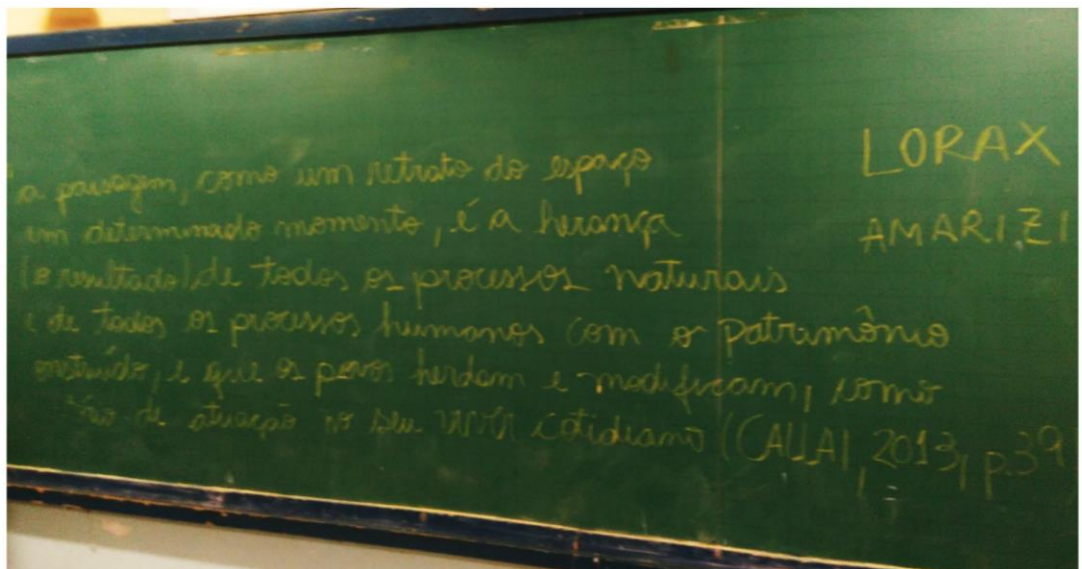 "a paisagem, como um retrato do espaço
LORAX
em determinado momento, é a herança
AMARIZI
(o resultado) de todos os processos naturais
e de todos os processos humanos com o patrimônio
construído, e que os povos herdam e modificam, como
de atuação no seu viver cotidiano (CALLAI, 2013, p.39